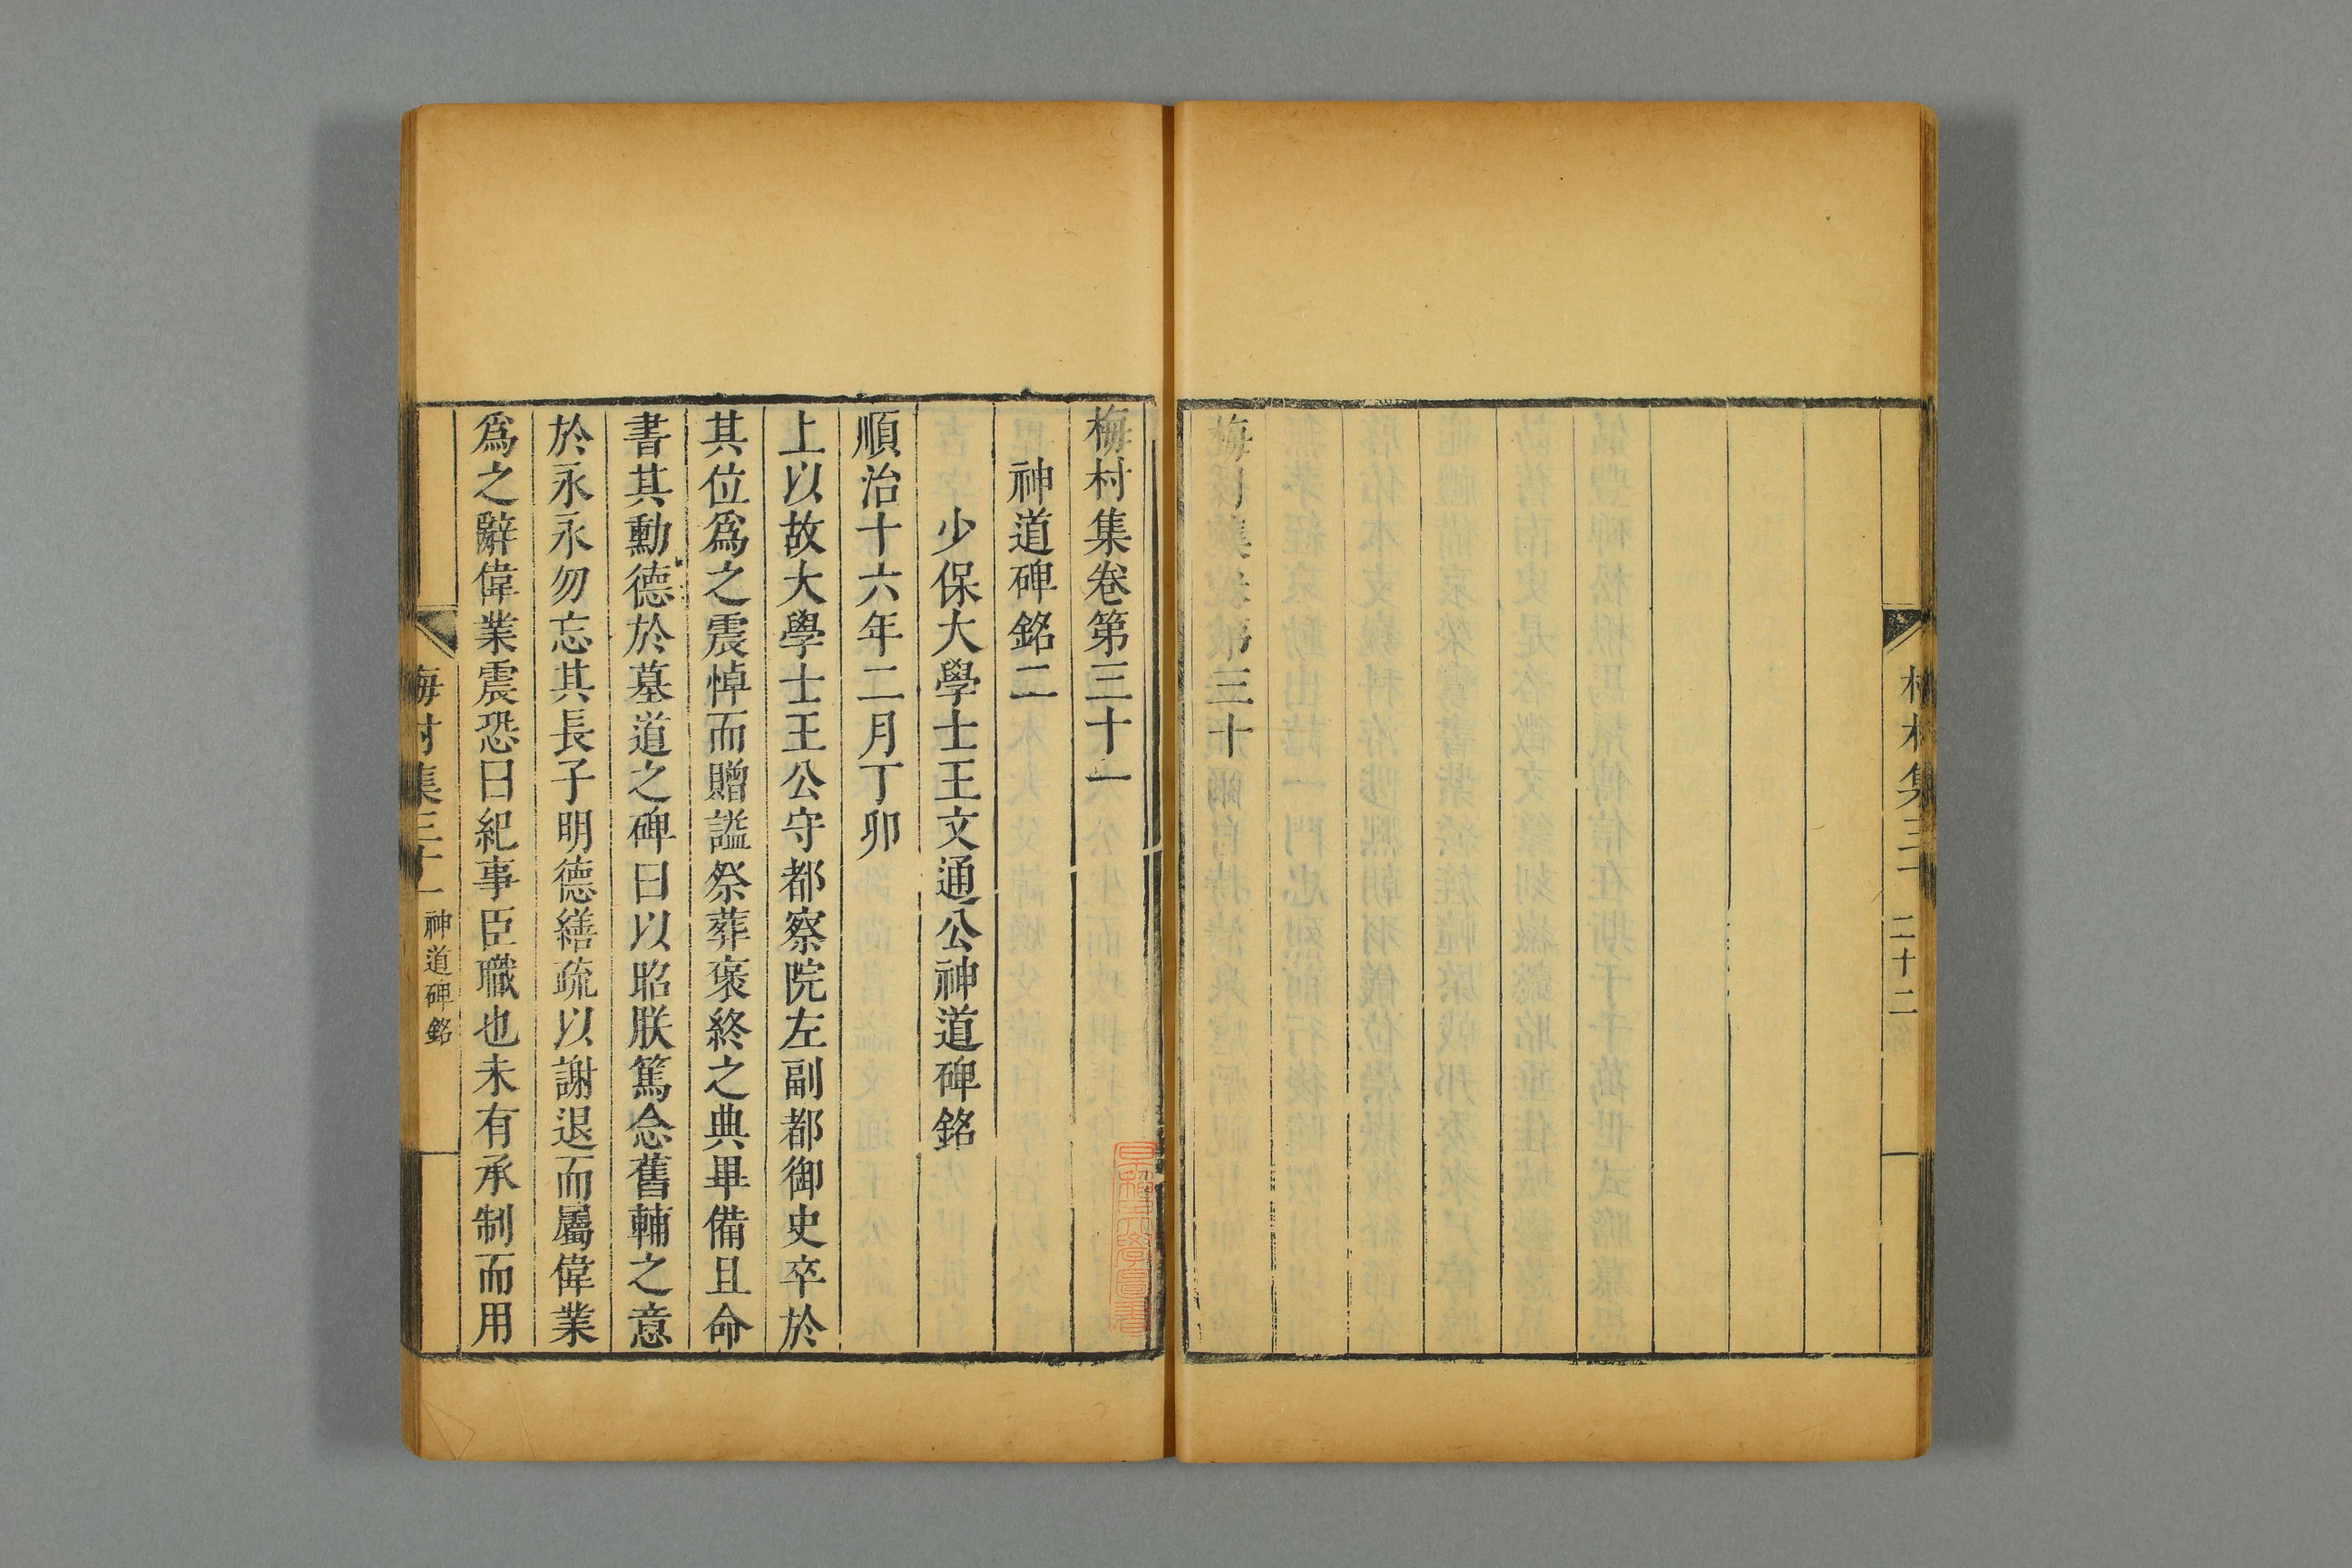 梅村集三十
二十二
梅村集卷第三十
梅村集卷第三十一
神道碑銘二
少保大學士王文通公神道碑銘
順治十六年二月丁卯
上以故大學士王公守都察院左副都御史卒於
其位爲之震悼而贈謚祭葬褒終之典畢備且命
書其勳德於墓道之碑曰以昭朕篤念舊輔之意
於永永勿忘其長子明德繕疏以謝退而屬偉業
爲之辭偉業震恐曰紀事臣職也未有承制而用
梅村集三十一
神道碑銘